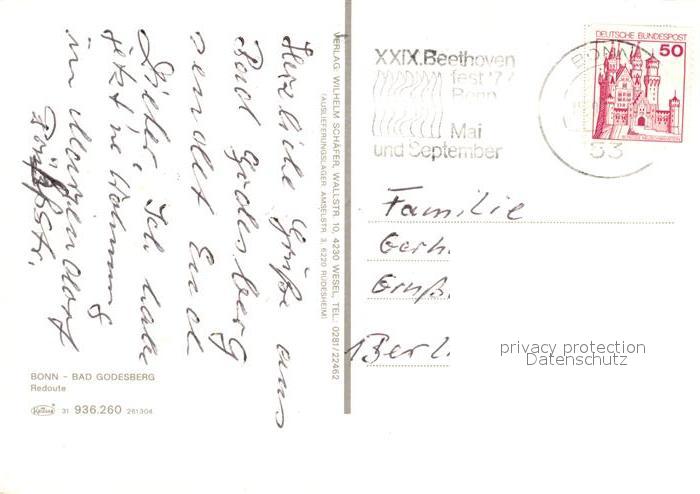 Herzliche Grüße aus
Bad Godesberg
sendet Euch
Dieter. Ich habe
jetzt ne Wohnung
in
VERLAG WILHELM SCHÄFER, WALLSTR 10, 4230 WESEL, TEL. 0281/22462
(AUSLIEFERUNGSLAGER AMSELSTR 3, 6220 RÜDESHEIM)
BONN - BAD GODESBERG
Redoute
31 936.260 261304
XXIX.Beethoven
fest '77
Bonn
Mai
und September
BONN
53
DEUTSCHE BUNDESPOST
50
Familie
Gerh.
Gruß.
1 Berl.
privacy protection
Datenschutz